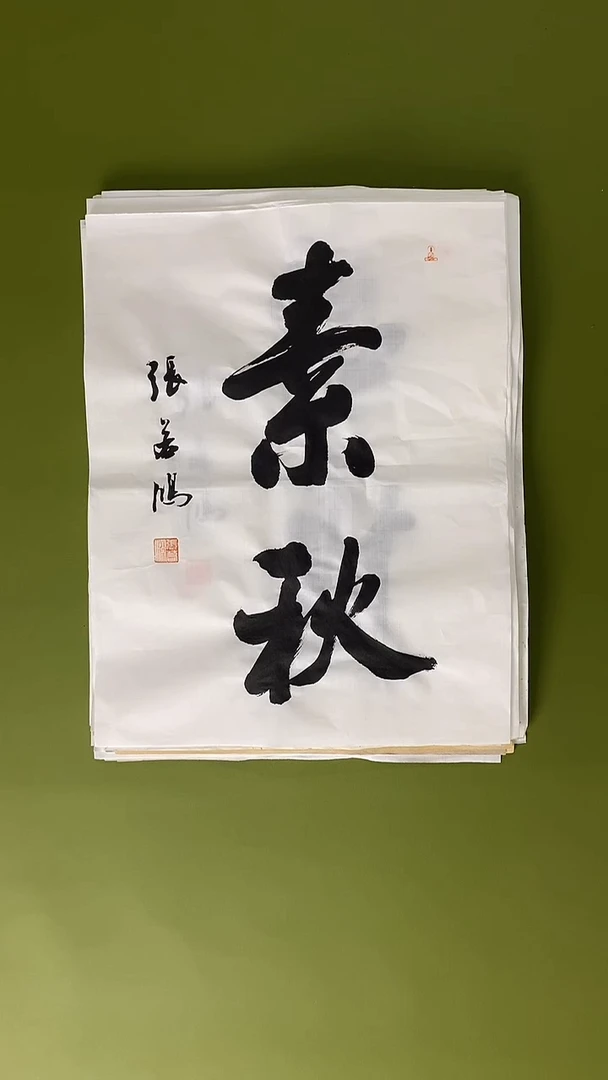 素秋
張若鴻